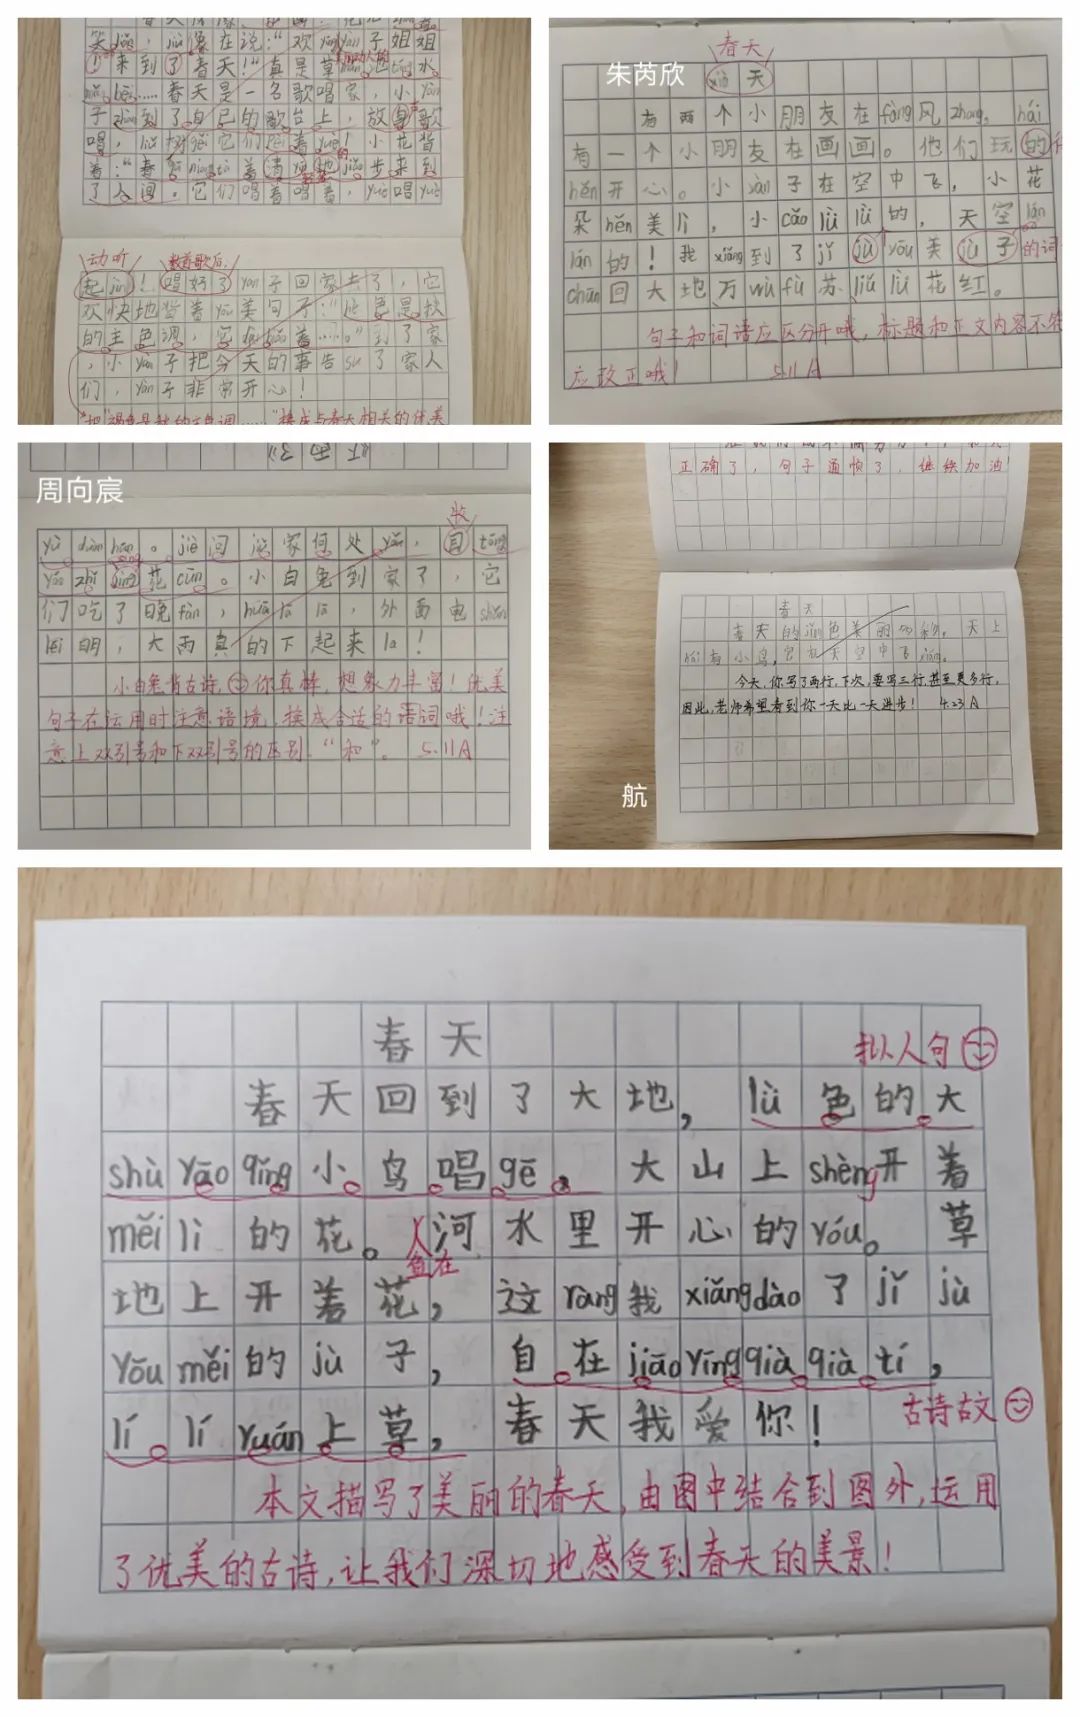 笑 , 像在说:“欢 子姐姐
来到了春天!”真是草 水
……春天是一名歌唱家,小yàn
子 到了自己的歌台上,放 歌
唱, 它们 着 ! 小花背
着:“春 着 步来到
了人间。它们唱着唱着,
动听 教养歌后,
起 ! 唱好了yàn子回家去了,它
欢快地背着yōu美句子:“ 色是秋
的主色调, ……。”到了家
,小yàn子把今天的事告sù了家人
们,yàn子非常开心!
朱芮欣
春天
天
有两个小朋友在fàng风zhēng,hái
有一个小朋友在画画。他们玩的
hěn开心。小yàn子在空中飞,小花
朵hěn美lì,小cǎo lǜ lǜ的,天空lán
lán的!我xiǎng到了jǐ jù yōu美jù子 的词
chūn回大地万wù fù苏liǔ lǜ花红。
句子和词语应区分开哦,标题和正文内容不
应改正哦! 5.11 A
周向宸
牧
jiè问 家何处yǒu, 目tóng
yáo zhǐ xìng花cūn。小白兔到家了,它
们吃了晚fàn,huā lā lā,外面电shǎn
léi明,大雨真的下起来la!
小白兔背古诗,你真棒,想象力丰富!优美
句子在运用时注意语境,换成合适的语词哦!注
意上双引号和下双引号的区别“和”。 5.11A
正确了,句子通顺了,继续加油!
春天
春天的 色美丽 。天上
hái有小鸟,它在天空中飞xiáng。
今天,你写了两行,下次,要写三行,甚至更多行,
因此,老师希望看到你一天比一天进步! 4.23 A
航
春天
拟人句
春天回到了大地,lǜ色的大
shù yāo qǐng小鸟唱gē。大山上shèng开着
měi lì的花。人鱼在河水里开心的yóu。草
地上开着花,这ràng我xiǎng dào了jǐ jù
yōu měi的jù子,自在jiāo yīng qià qià tí,
lí lí yuán上草,春天我爱你!
古诗古文
本文描写了美丽的春天,由图中结合到图外,运用
了优美的古诗,让我们深切地感受到春天的美景!